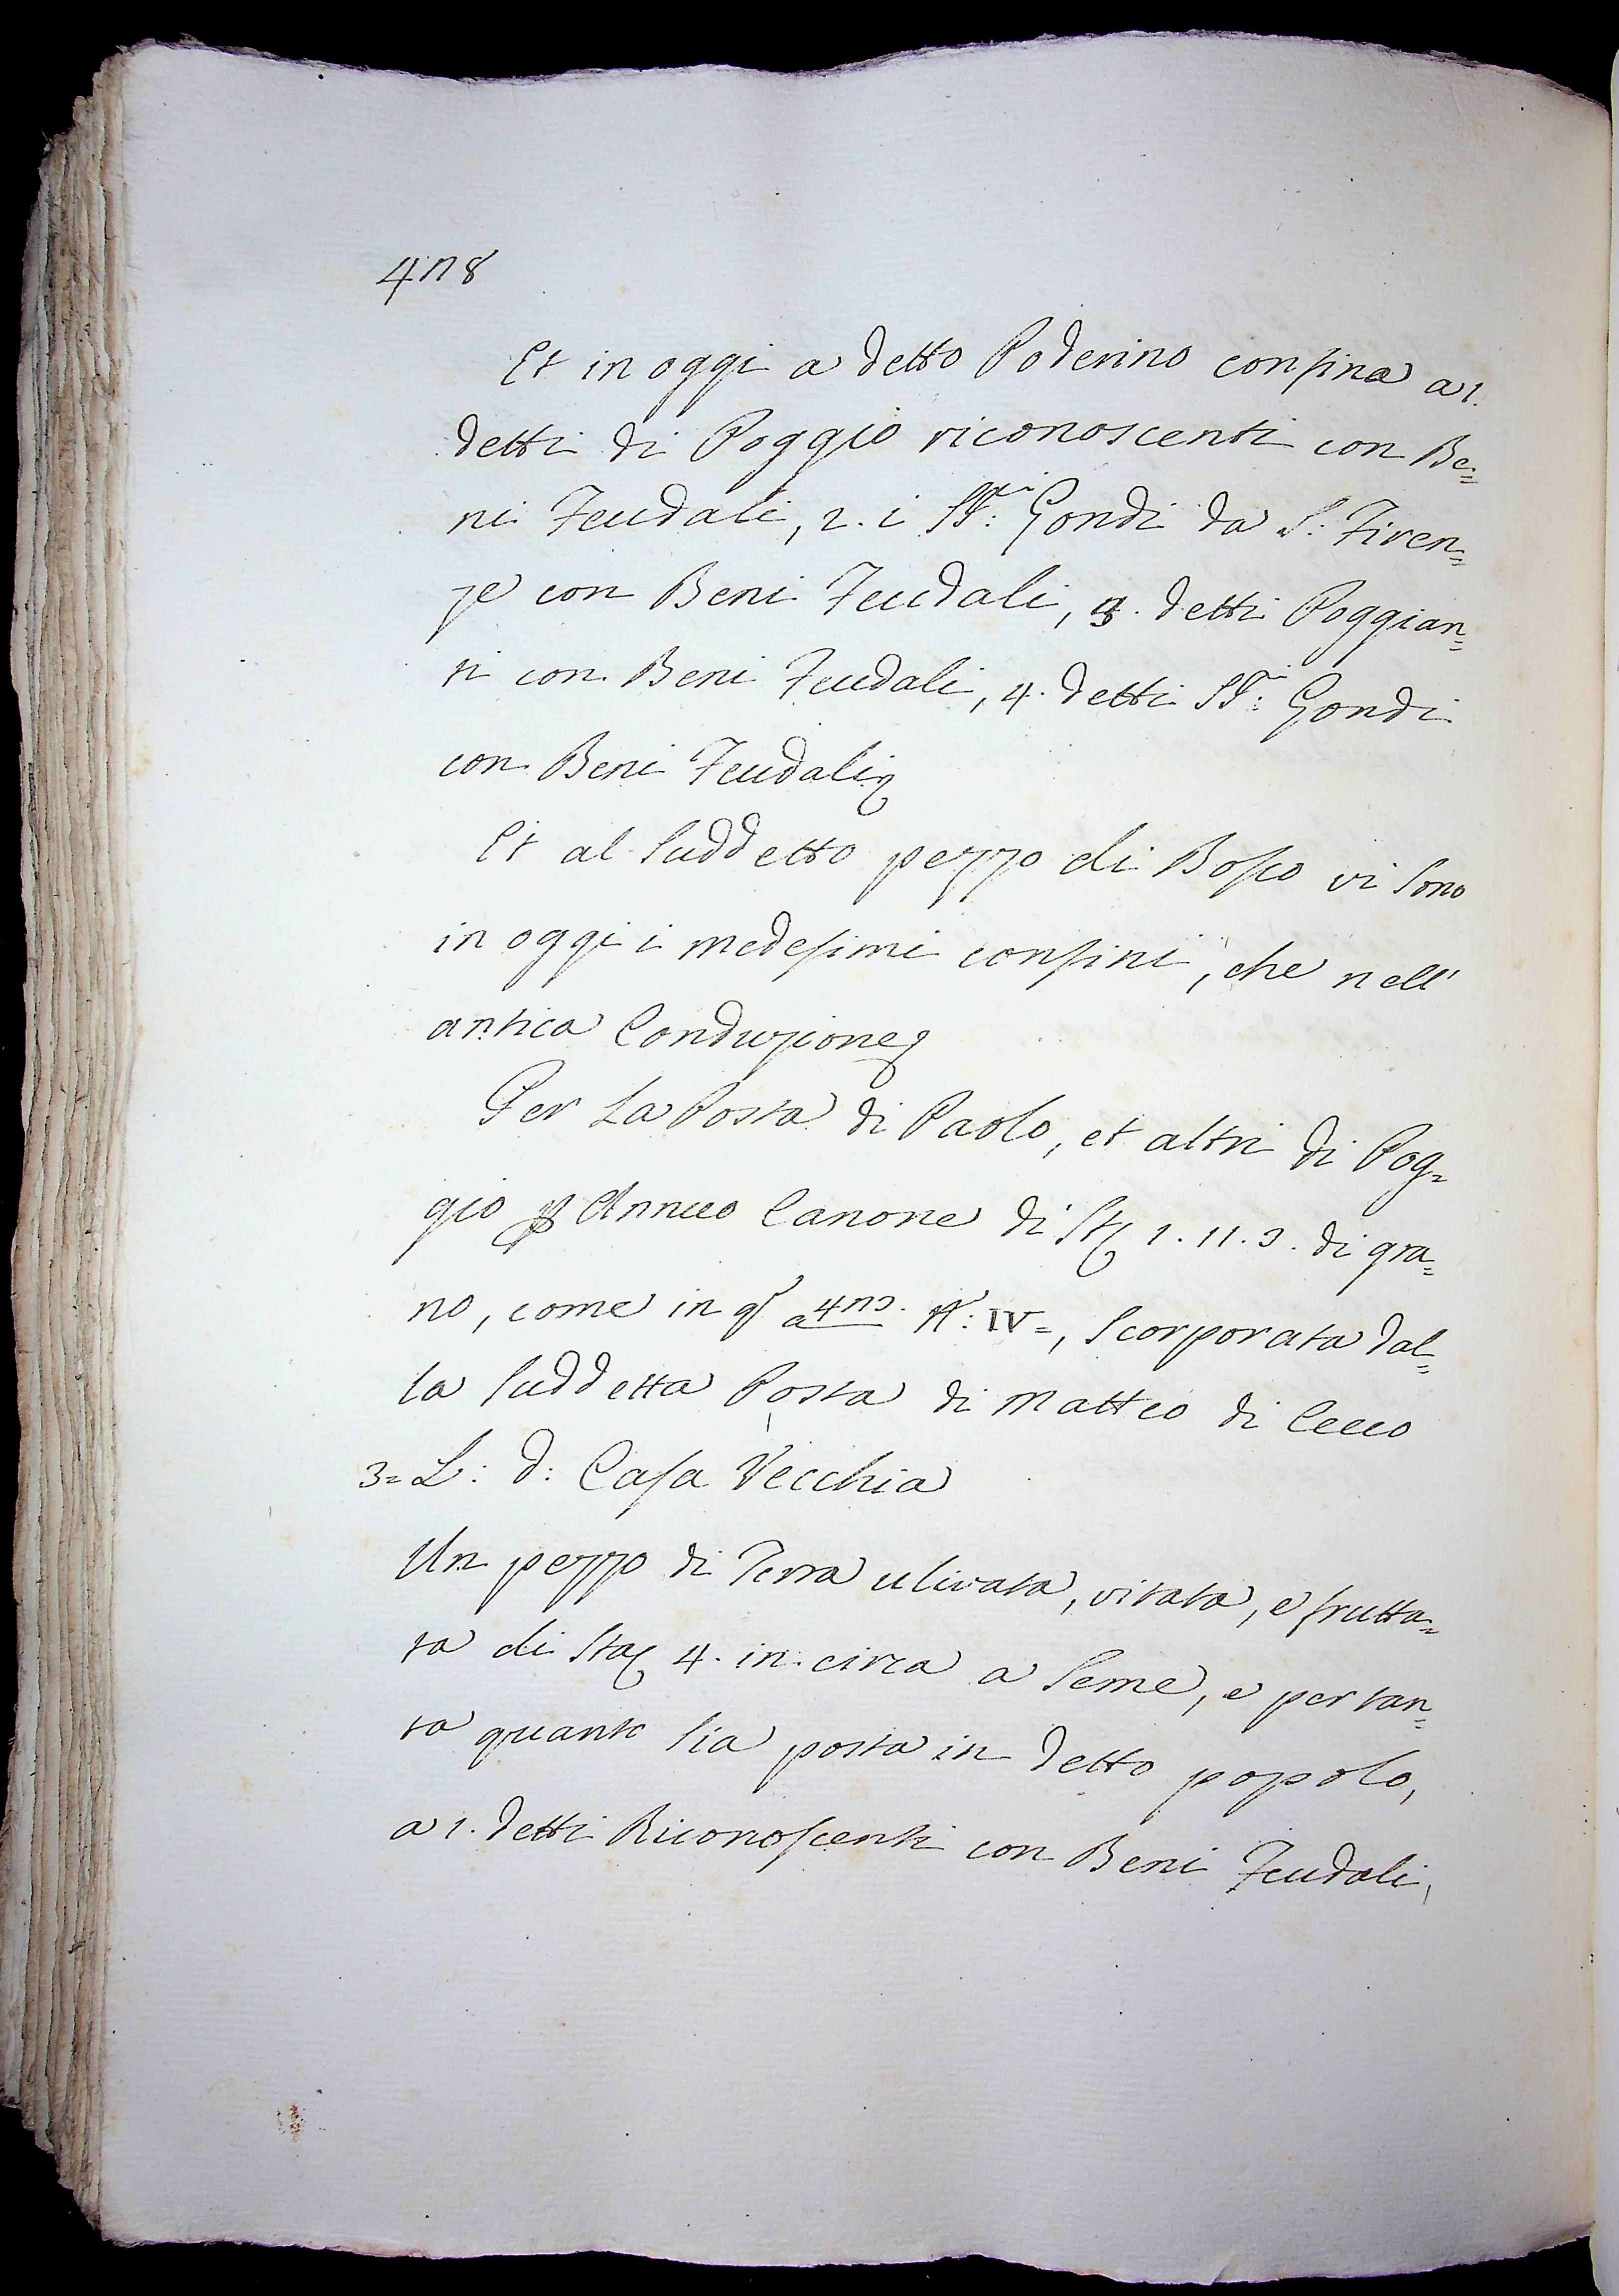 478
Et in oggi a detto Poderino confina a 1.
detti di Poggio riconoscenti con Be=
ni Feudali, 2. i SS:ri Gondi da S: Firen=
ze con Beni Feudali, 3. detti Poggian=
ti con Beni Feudali, 4. detti SS:ri Gondi
con Beni Feudali
Et al suddetto pezzo di Bosco vi sono
in oggi i medesimi confini, che nell'
antica Conduzione
Per La Posta di Paolo, et altri di Pog=
gio p Annuo Canone di St 1. 11. 3. di gra=
no, come in q a IV=, scorporata dal=
la suddetta Posta di Matteo di Cecco
3= L: d: Casa Vecchia
Un pezzo di Terra ulivata, vitata, e frutta=
ta di Sta 4. in circa a seme, e per tan=
to quanto sia posta in detto popolo,
a 1. detti Riconoscenti con Beni Feudali,